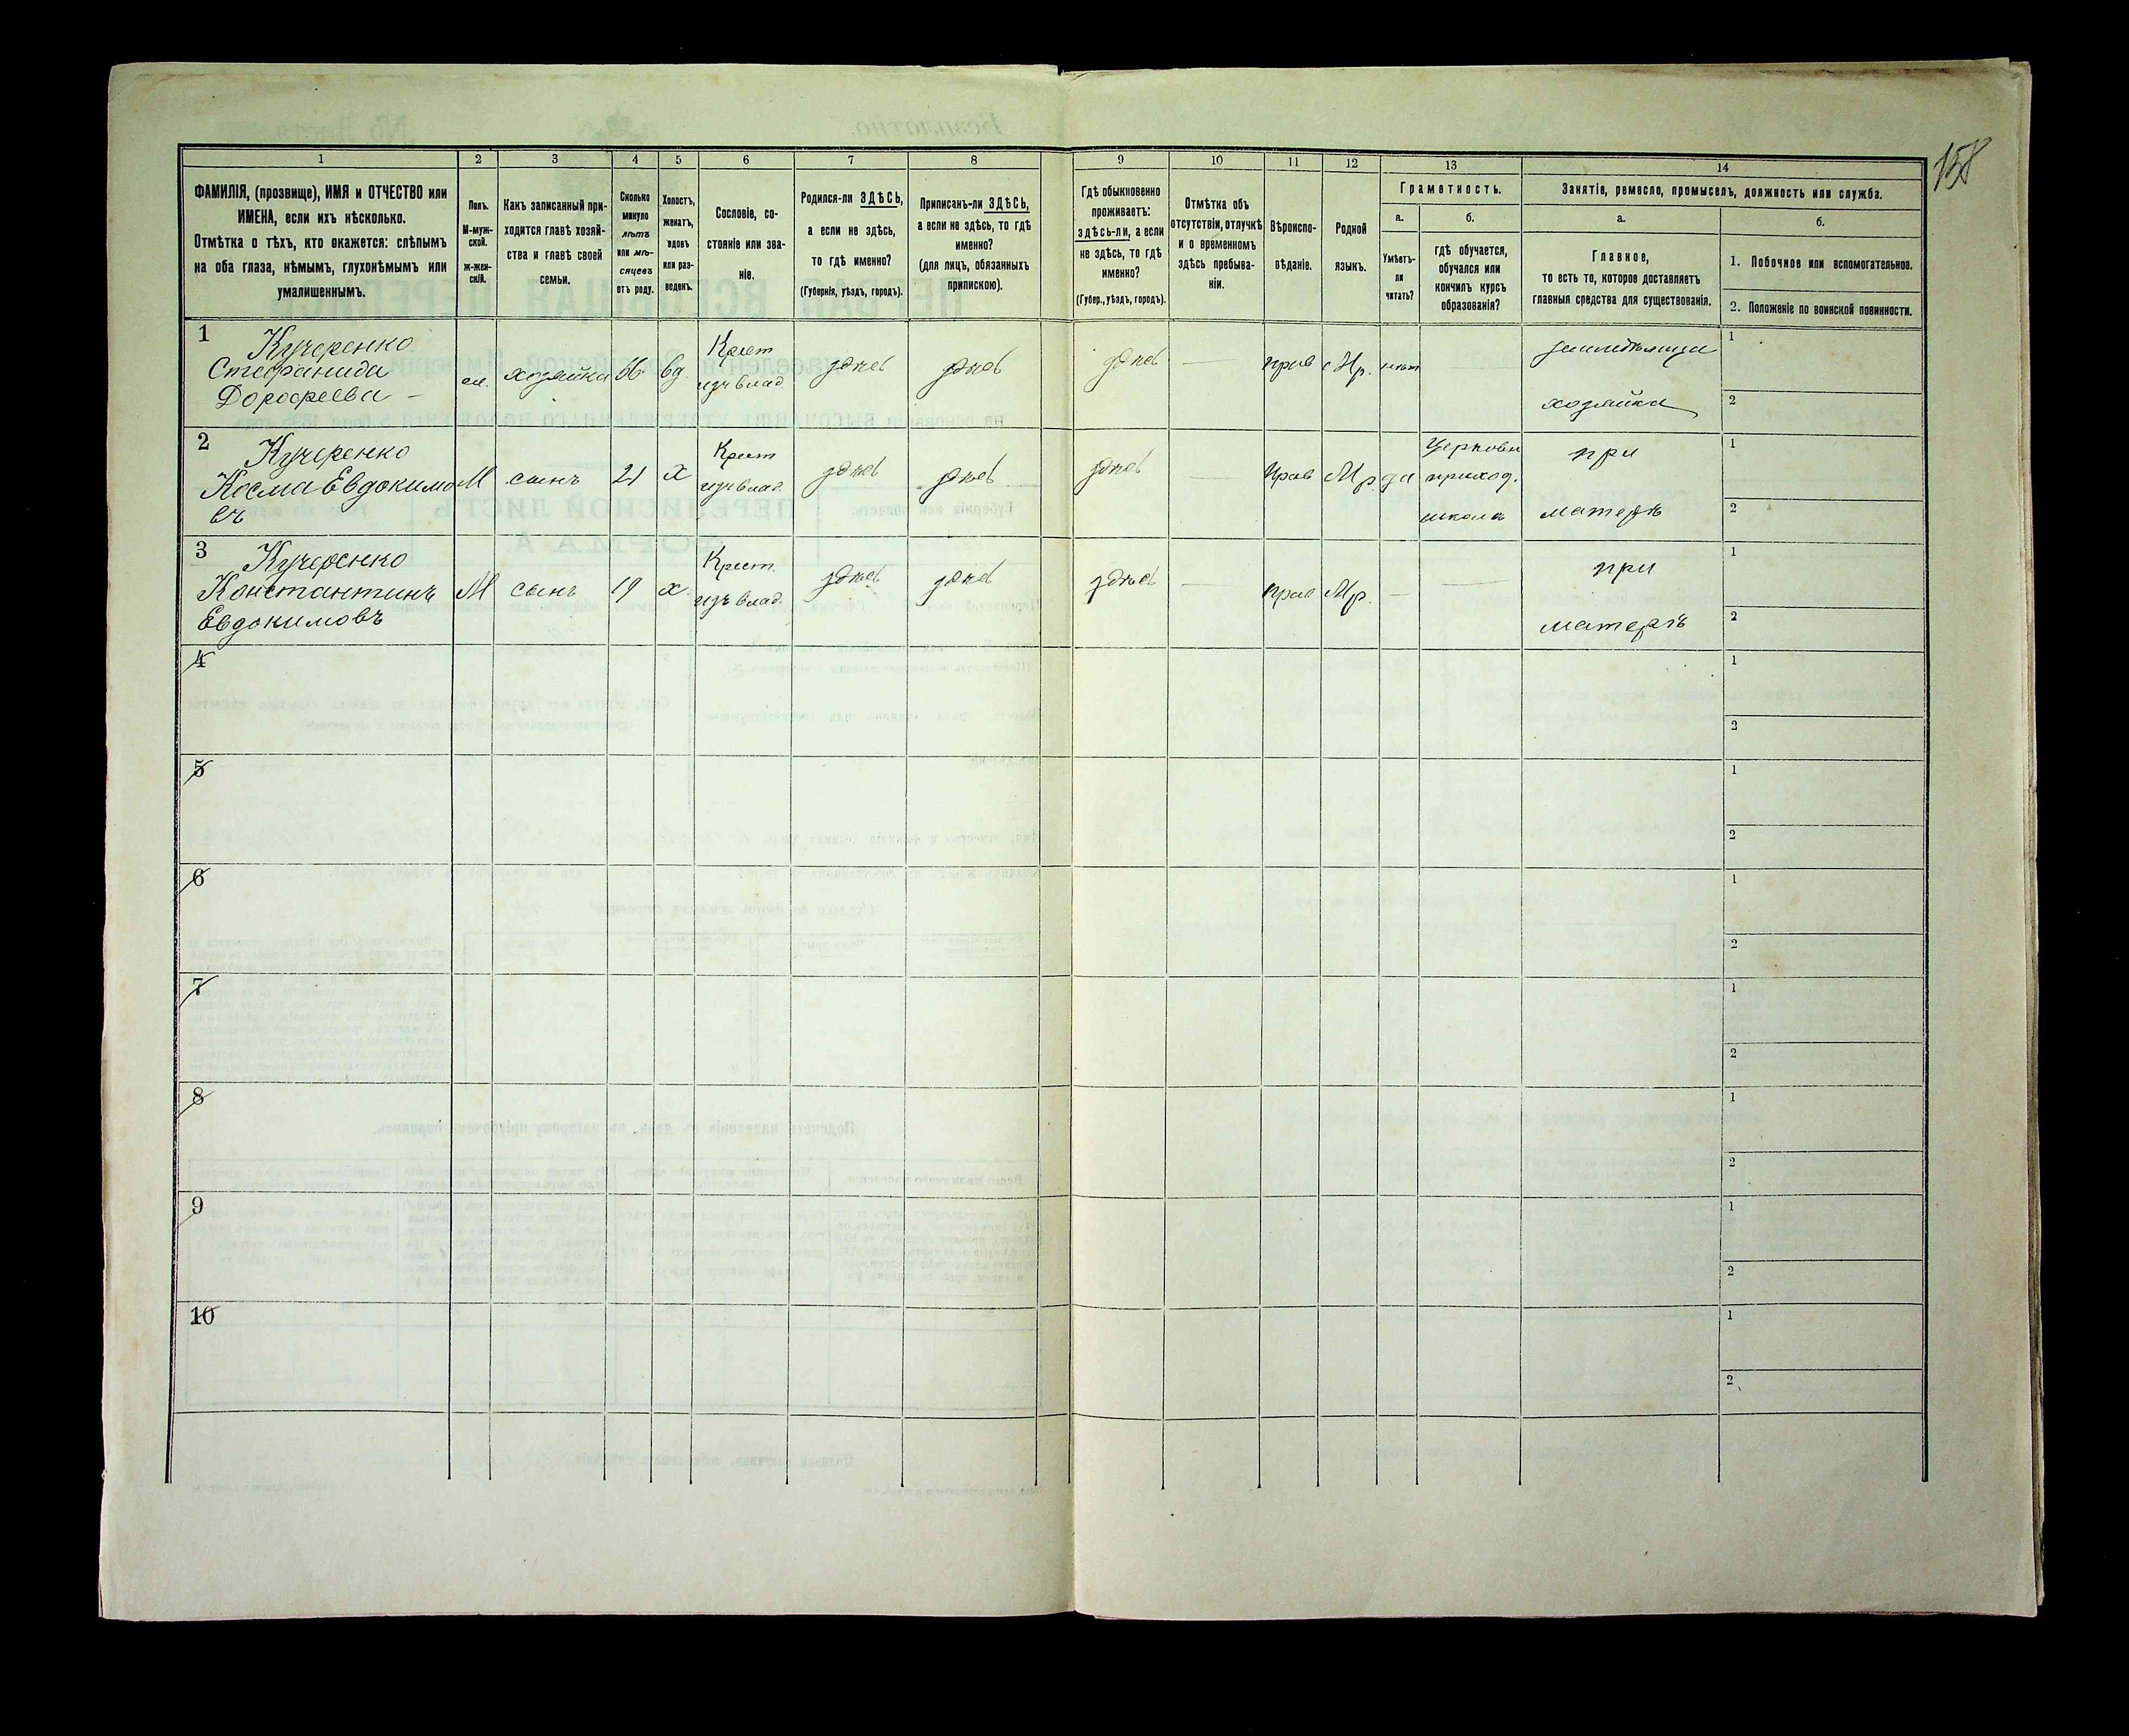 158
1 2 3 4 5 6 7 8 9 10 11 12 13 14
ФАМИЛІЯ, (прозвище), ИМЯ и ОТЧЕСТВО или
ИМЕНА, если ихъ нѣсколько.
Отмѣтка о тѣхъ, кто окажется: слѣпымъ
на оба глаза, нѣмымъ, глухонѣмымъ или
умалишеннымъ.
Полъ.
М-муж-
ской.
Ж-жен-
скій.
Какъ записанный при-
ходится главѣ хозяй-
ства и главѣ своей
семьи.
Сколько
минуло
лѣтъ
или мѣ-
сяцевъ
отъ роду.
Холостъ,
женатъ,
вдовъ
или раз-
веденъ.
Сословіе, со-
стояніе или зва-
ніе.
Родился-ли ЗДѢСЬ,
а если не здѣсь,
то гдѣ именно?
(Губернія, уѣздъ, городъ).
Приписанъ-ли ЗДѢСЬ,
а если не здѣсь, то гдѣ
именно?
(для лицъ, обязанныхъ
припискою).
Гдѣ обыкновенно
проживаетъ:
здѣсь-ли, а если
не здѣсь, то гдѣ
именно?
(Губер., уѣздъ, городъ).
Отмѣтка объ
отсутствіи, отлучкѣ
и о временномъ
здѣсь пребыва-
ніи.
Вѣроиспо-
вѣданіе.
Родной
языкъ.
Грамотность.
а.
Умѣетъ-
ли
читать?
б.
гдѣ обучается,
обучался или
кончилъ курсъ
образованія?
Занятіе, ремесло, промыселъ, должность или служба.
а.
Главное,
то есть то, которое доставляетъ
главныя средства для существованія.
б.
1. Побочное или вспомогательное.
2. Положеніе по воинской повинности.
1
Кучеренко
Стефанида
Дорофеева
хозяйка
вд.
Крест
изъ влад.
здѣсь
здѣсь
здѣсь
—
прав
Мр.
нѣт
земледѣлица
хозяйка
1
2
2
Кучеренко
Косма Евдокимо
въ
М
сынъ
21
х
Крест
изъ влад.
здѣсь
здѣсь
здѣсь
—
Прав
Мр.
да
Церковн
приход.
школа
при
матерѣ
1
2
3
Кучеренко
Константинъ
Евдокимовъ
М
сынъ
19
х.
Крест.
изъ влад.
здѣсь
здѣсь
здѣсь
—
прав
Мр.
—
—
при
матерѣ
1
2
4
1
2
5
1
2
6
1
2
7
1
2
8
1
2
9
1
2
10
1
2